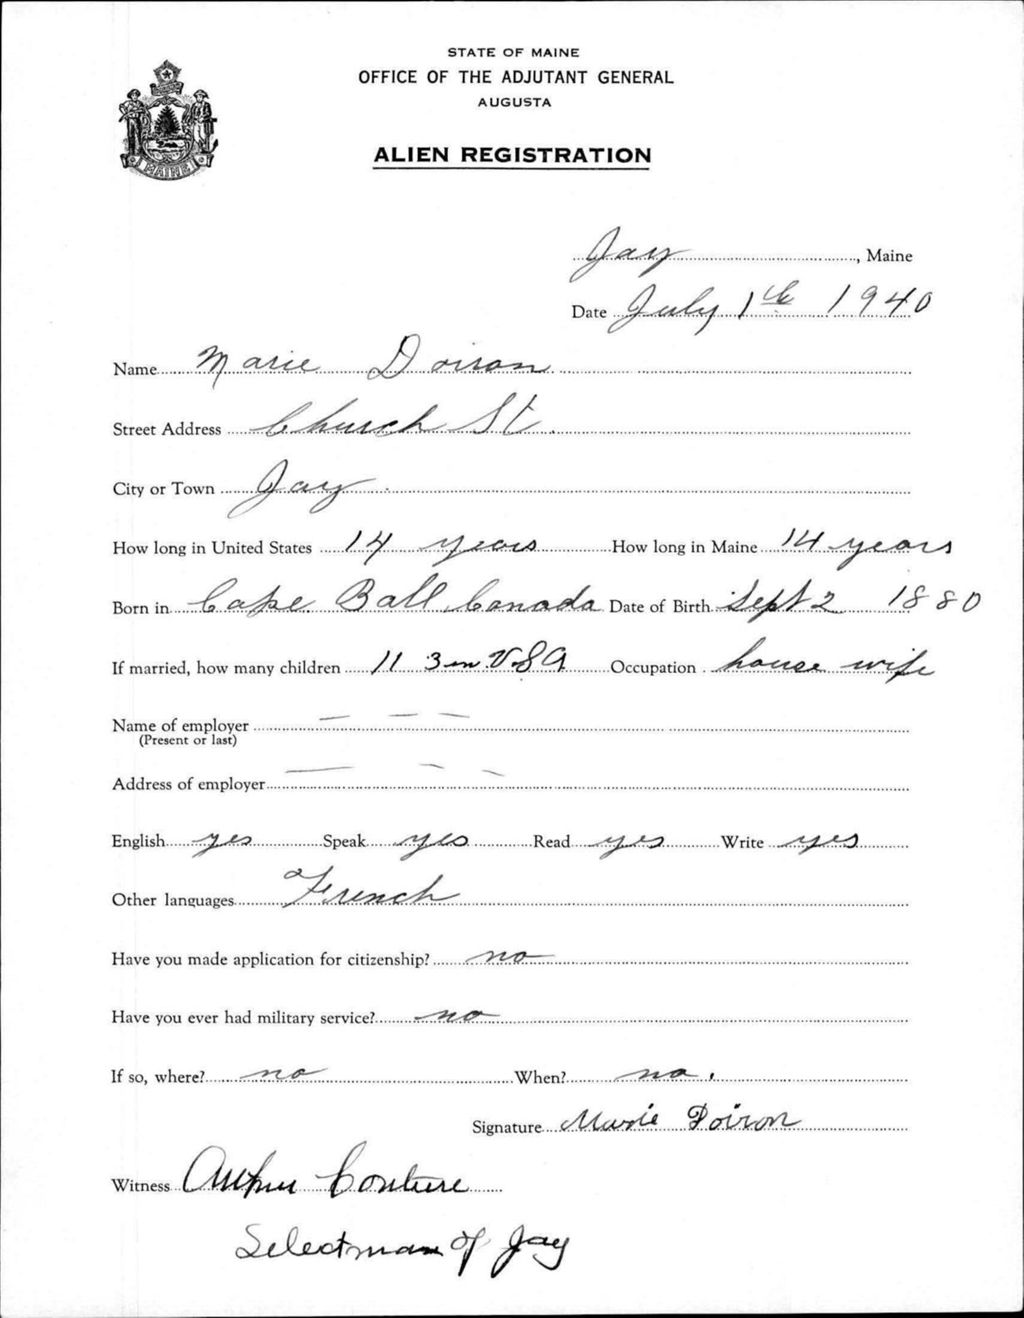 STATE OF MAINE
OFFICE OF THE ADJUTANT GENERAL
AUGUSTA
ALIEN REGISTRATION
MAINE
Jay, Maine
Date July 1th 1940
Name Marie Doiron
Street Address Church St.
City or Town Jay.
How long in United States 14 years How long in Maine 14 years
Born in Cape Ball, Canada Date of Birth Sept 2 1880
If married, how many children 11 3 in USA Occupation house wife
Name of employer — — —
(Present or last)
Address of employer — — —
English yes Speak yes Read yes Write yes
Other languages French
Have you made application for citizenship? no
Have you ever had military service? no
If so, where? no When? no.
Signature Marie Doiron
Witness Arthur Couture
Selectman of Jay